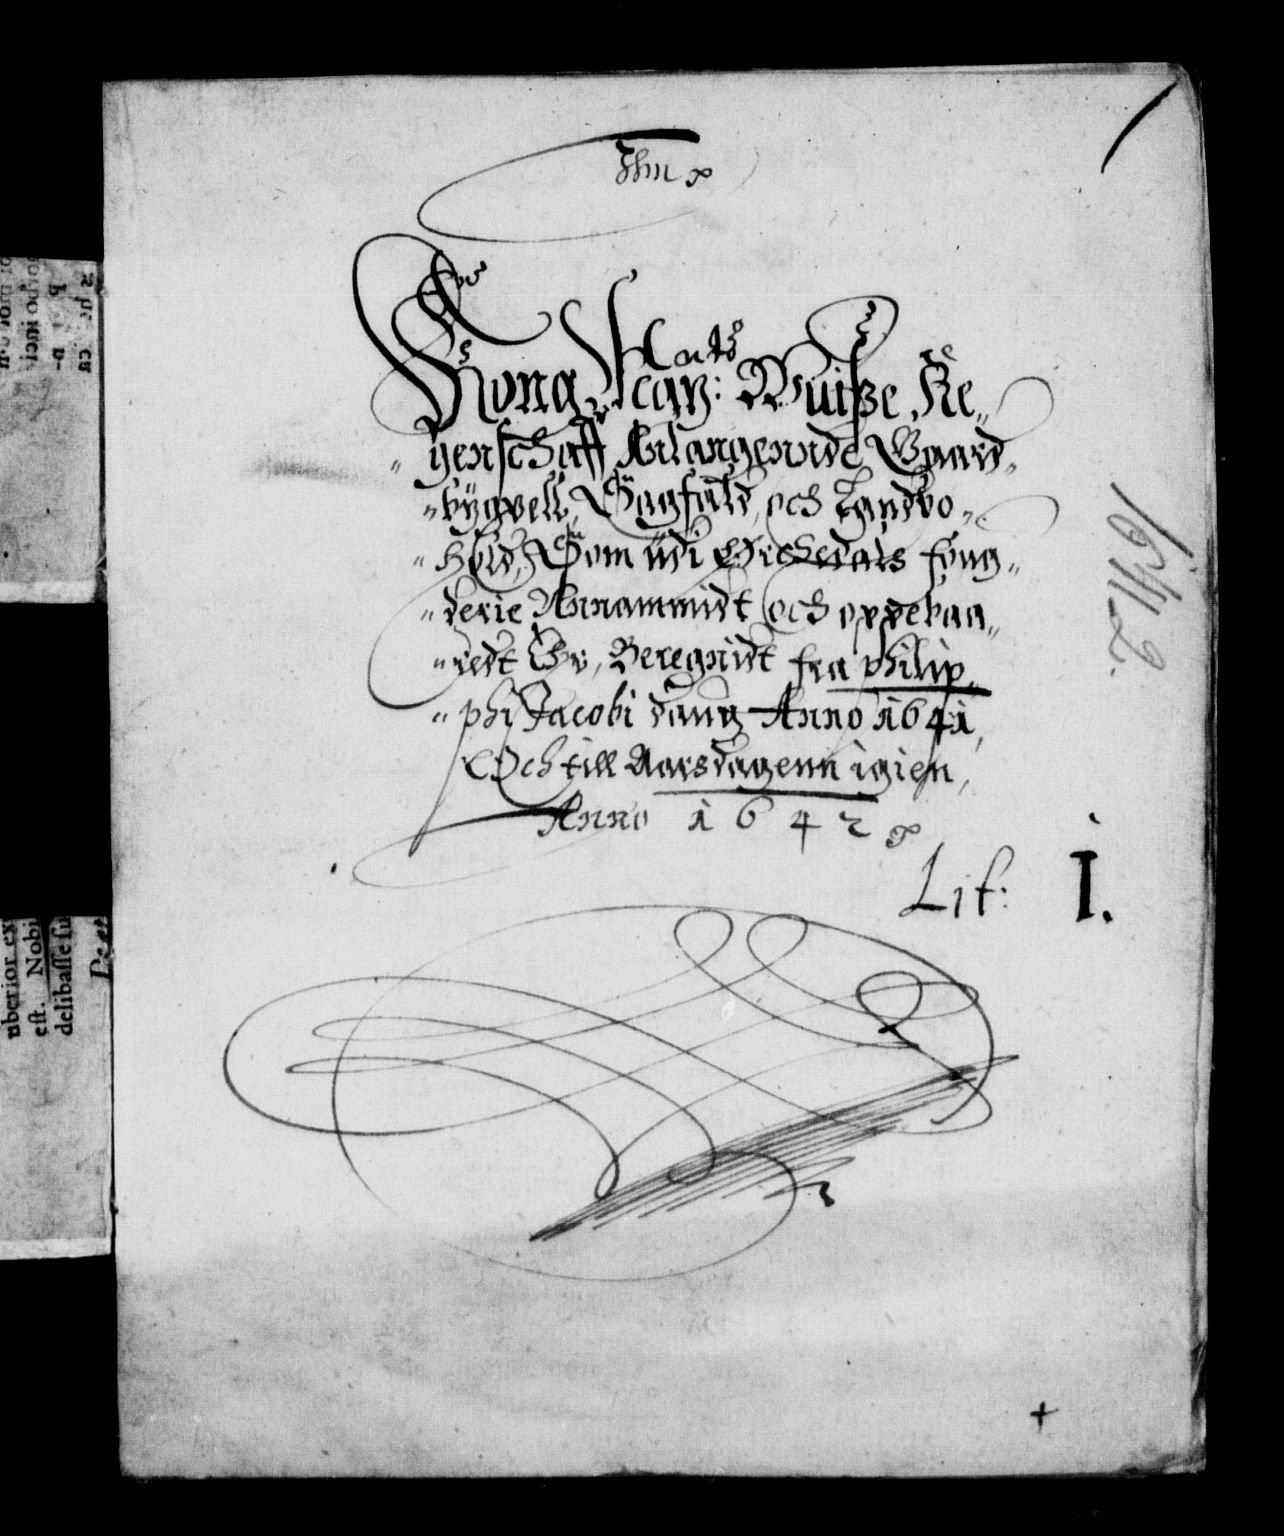 Kong May:ts Wisse Re-
genschaff Anlangennde Gaard
bygsell, Sagfald, och Landbo-
hold, Som udi Orchedals foug-
derie Annammidt och oppebaa-
redt Er, Beregnidt fra philip-
phi Jacobi daug Anno 1641,
Och till Aarsdagenn igien,
Anno 1642
Lit: I.
1642.
uberior ex
est. Nobi
delibasse su